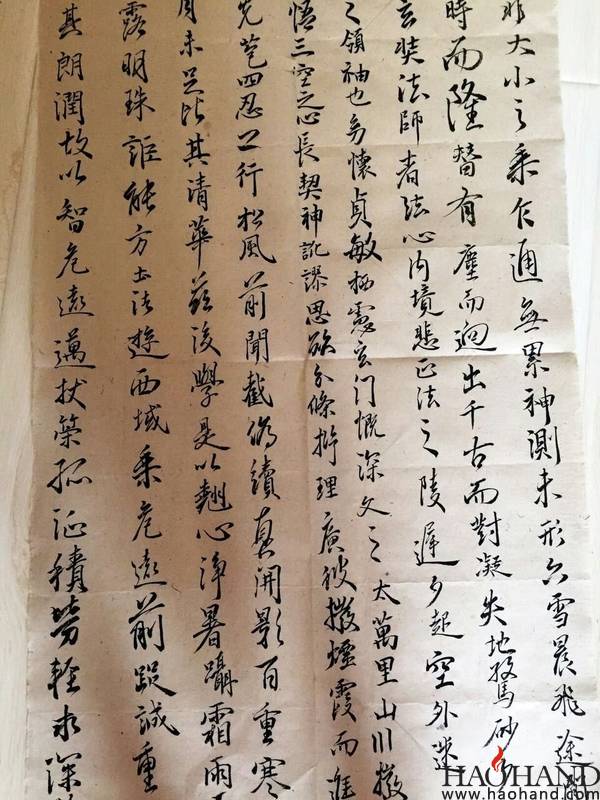 非大小之乘乍通無累神測未形六雪晨飛塗
時而隆替有塵而迥出千古而對凝失地驚砂夕
玄奘法師者法心內境悲正法之陵遲夕起空外迷
之領袖也幼懷貞敏栖慮玄门慨深文之太萬里山川撥
悟三空之心長契神訛謬思欲分條析理廣彼撥煙霞而進
先苞四忍之行松風前聞截偽續真開影百重寒
月未足比其清華茲後學是以翹心淨暑躡霜雨
露明珠詎能方土法遊西域乘危遠前蹤誠重
其朗潤故以智危遠邁杖策孤征積勞輕求深
HAOHAND
www.haohand.com